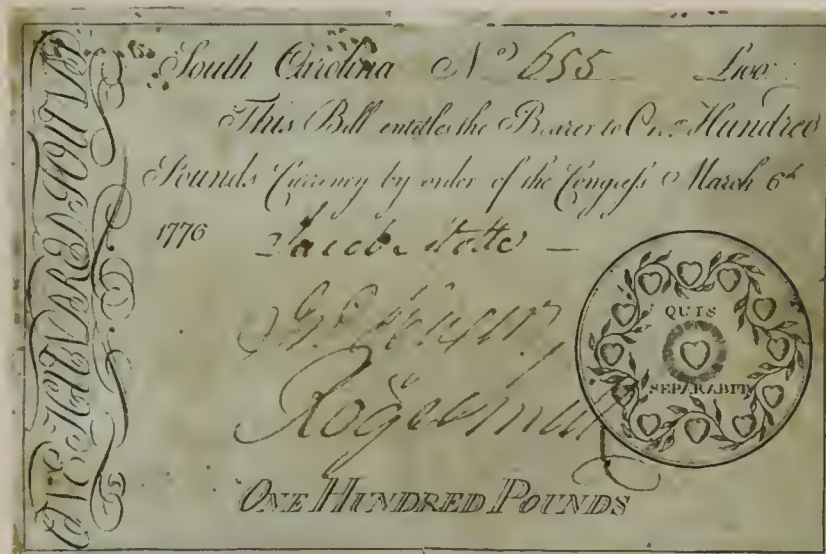 South Carolina Nº 655 £100
This Bill entitles the Bearer to One Hundred
Pounds Currency by order of the Congress March 6th
1776 Jacob Motte
Roger Smith
QUIS
SEPARABIT
ONE HUNDRED POUNDS
ONE HUNDRED POUNDS